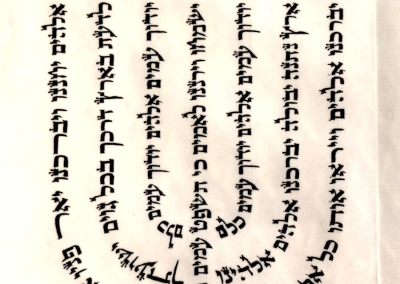 אלהים יחננו ויברכנו יאר פניו
לדעת בארץ דרכך בכל גוים ישועתך
יודוך עמים אלהים יודוך עמים כלם
ישמחו וירננו לאמים כי תשפט עמים
יודוך עמים אלהים יודוך עמים כלם
ארץ נתנה יבולה יברכנו אלהים
יברכנו אלהים וייראו אותו כל